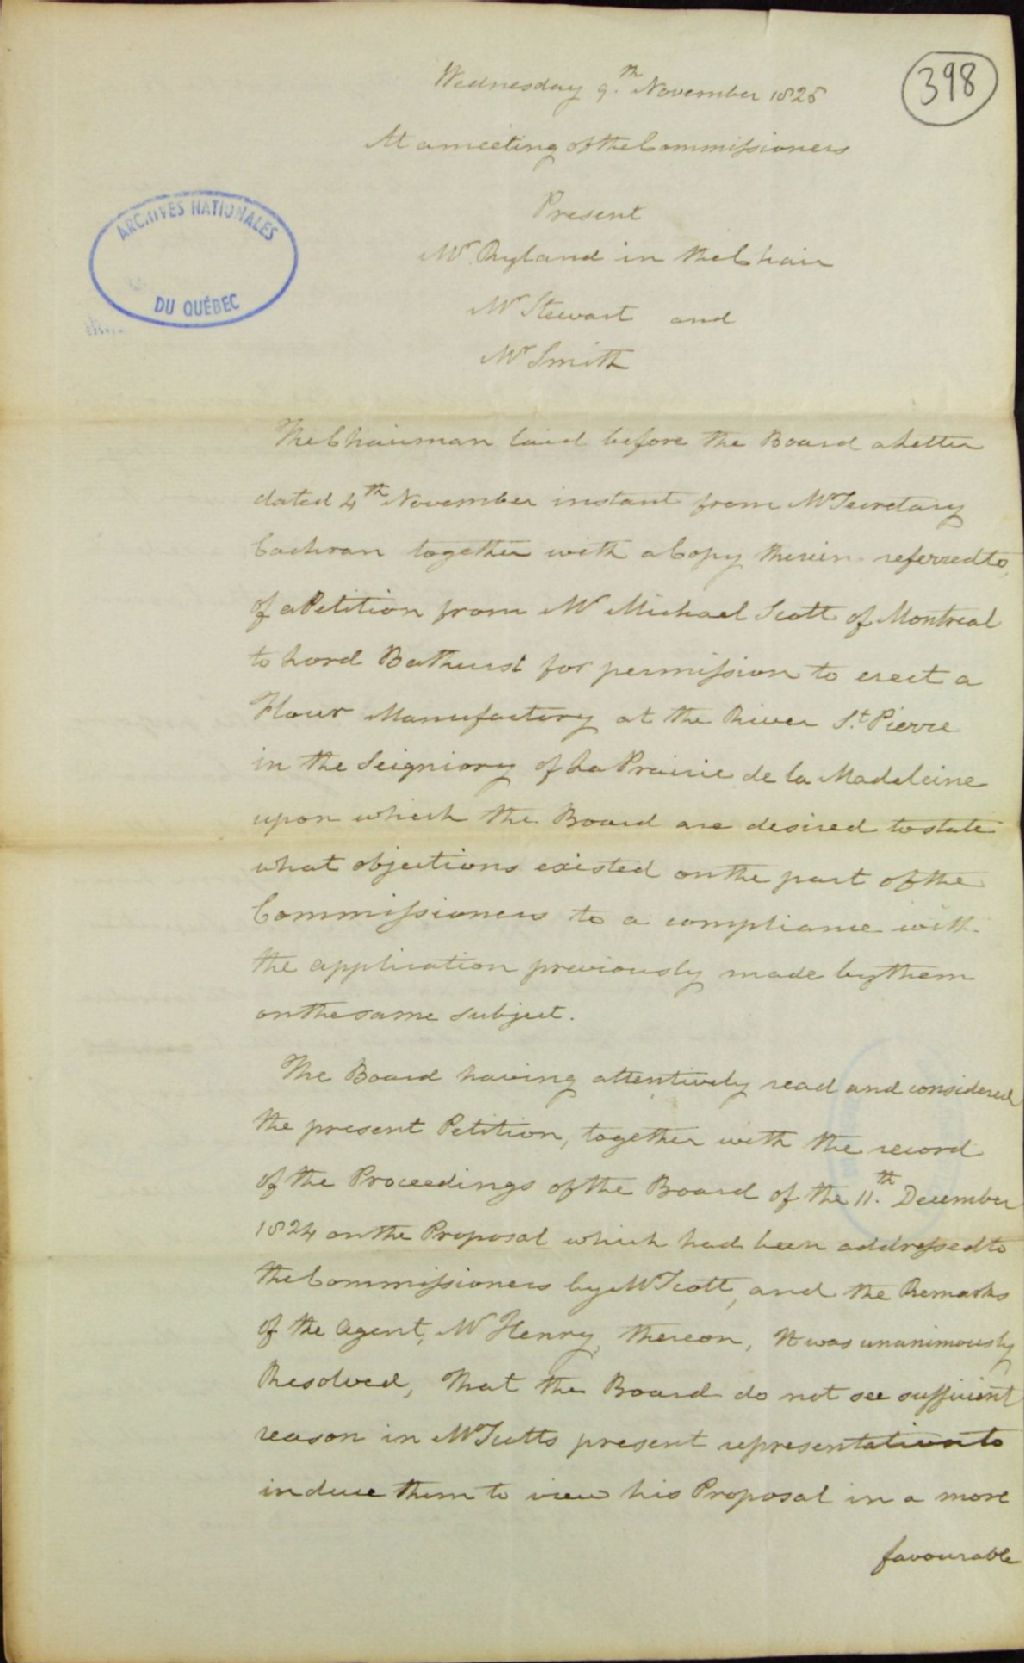 398
Wednesday 9.th November 1825
At a meeting of the Commissioners
Present
Mr Ryland in the Chair
Mr Stewart and
Mr Smith
ARCHIVES NATIONALES
DU QUÉBEC
The Chairman laid before the Board a Letter
dated 4th November instant from Mr Secretary
Cochran together with a Copy therein referred to,
of a Petition from Mr Michael Scott of Montreal
to Lord Bathurst for permission to erect a
Flour Manufactory at the River St. Pierre
in the Seigniory of La Prairie de la Madeleine
upon which the Board are desired to state
what objections existed on the part of the
Commissioners to a compliance with
the application previously made by them
on the same subject.
The Board having attentively read and considered
the present Petition, together with the record
of the Proceedings of the Board of the 11.th December
1824 on the Proposal which had been addressed to
the Commissioners by Mr Scott, and the Remarks
of the Agent, Mr Henry, thereon, It was unanimously
Resolved, That the Board do not see sufficient
reason in Mr Scotts present representation to
induce them to view his Proposal in a more
favourable